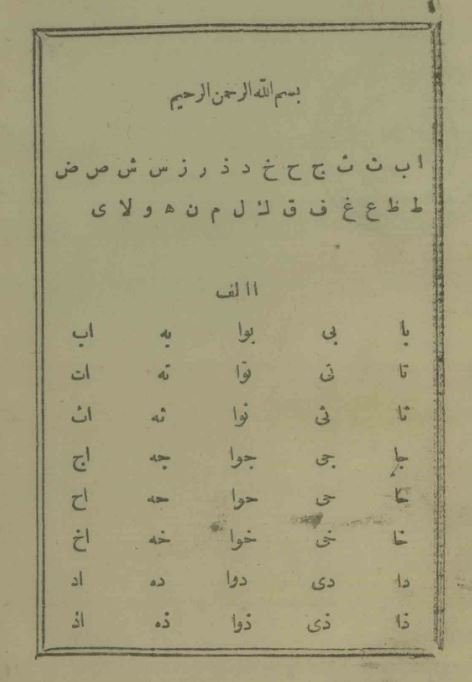 بسم الله الرحمن الرحيم
ا ب ت ث ج ح خ د ذ ر ز س ش ص ض
ط ظ ع غ ف ق ك ل م ن ه و لا ى
ا الف
با بى بوا به اب
تا تى توا ته ات
ثا ثى ثوا ثه اث
جا جى جوا جه اج
حا حى حوا حه اح
خا خى خوا خه اخ
دا دى دوا ده اد
ذا ذى ذوا ذه اذ